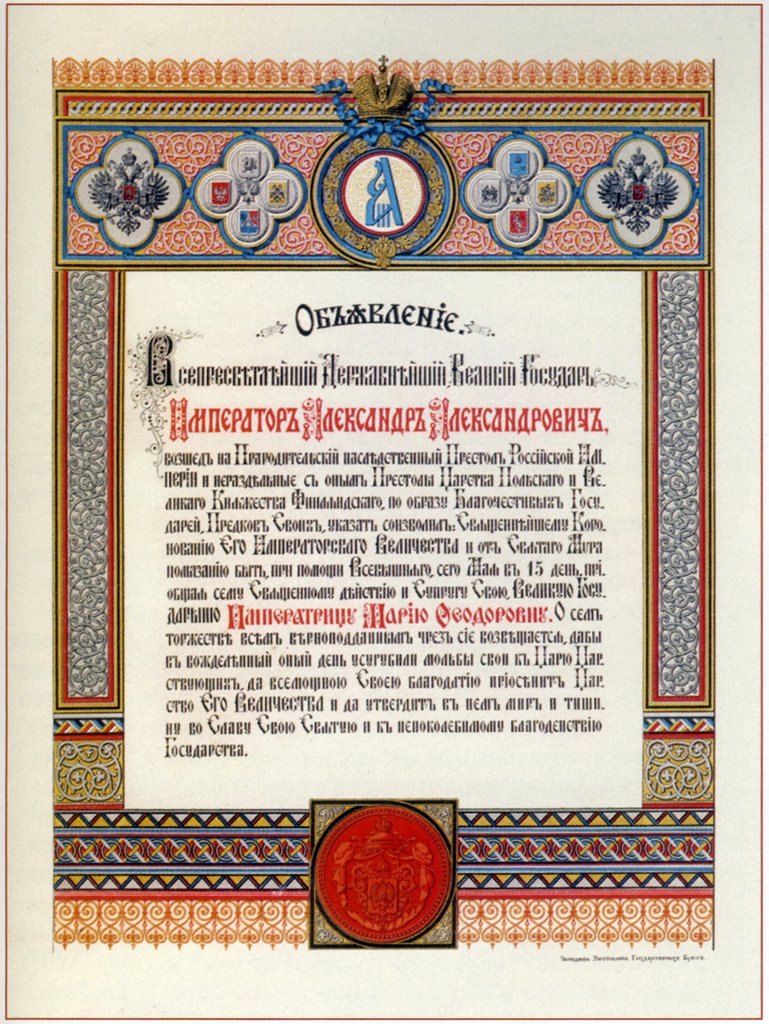 Объѧвленіе.
Всепресвѣтлѣйшій Державнѣйшій Великій Государь
Императоръ Александръ Александровичъ,
возшедъ на Прародительскій наслѣдственный Престолъ Россійской Им-
періи и нераздѣльные съ онымъ Престолы Царства Польскаго и Ве-
ликаго Княжества Финляндскаго, по образу Благочестивыхъ Госу-
дарей, Предковъ Своихъ, указать соизволилъ: Священнѣйшему Коро-
нованію Его Императорскаго Величества и отъ Святаго Мѵра
помазанію быть, при помощи Всевышняго, сего Мая въ 15 день, прі-
общая сему Священному дѣйствію и Супругу Свою, Великую Госу-
дарыню Императрицу Марію Ѳеодоровну. О семъ
торжествѣ всѣмъ вѣрноподданнымъ чрезъ сіе возвѣщается, дабы
въ вожделѣнный оный день усугубили мольбы свои къ Царю Цар-
ствующихъ, да всемощною Своею благодатію пріосѣнитъ Цар-
ство Его Величества и да утвердитъ въ немъ миръ и тиши-
ну во Славу Свою Святую и къ непоколебимому благоденствію
Государства.
Экспедиція Заготовленія Государственныхъ Бумагъ.